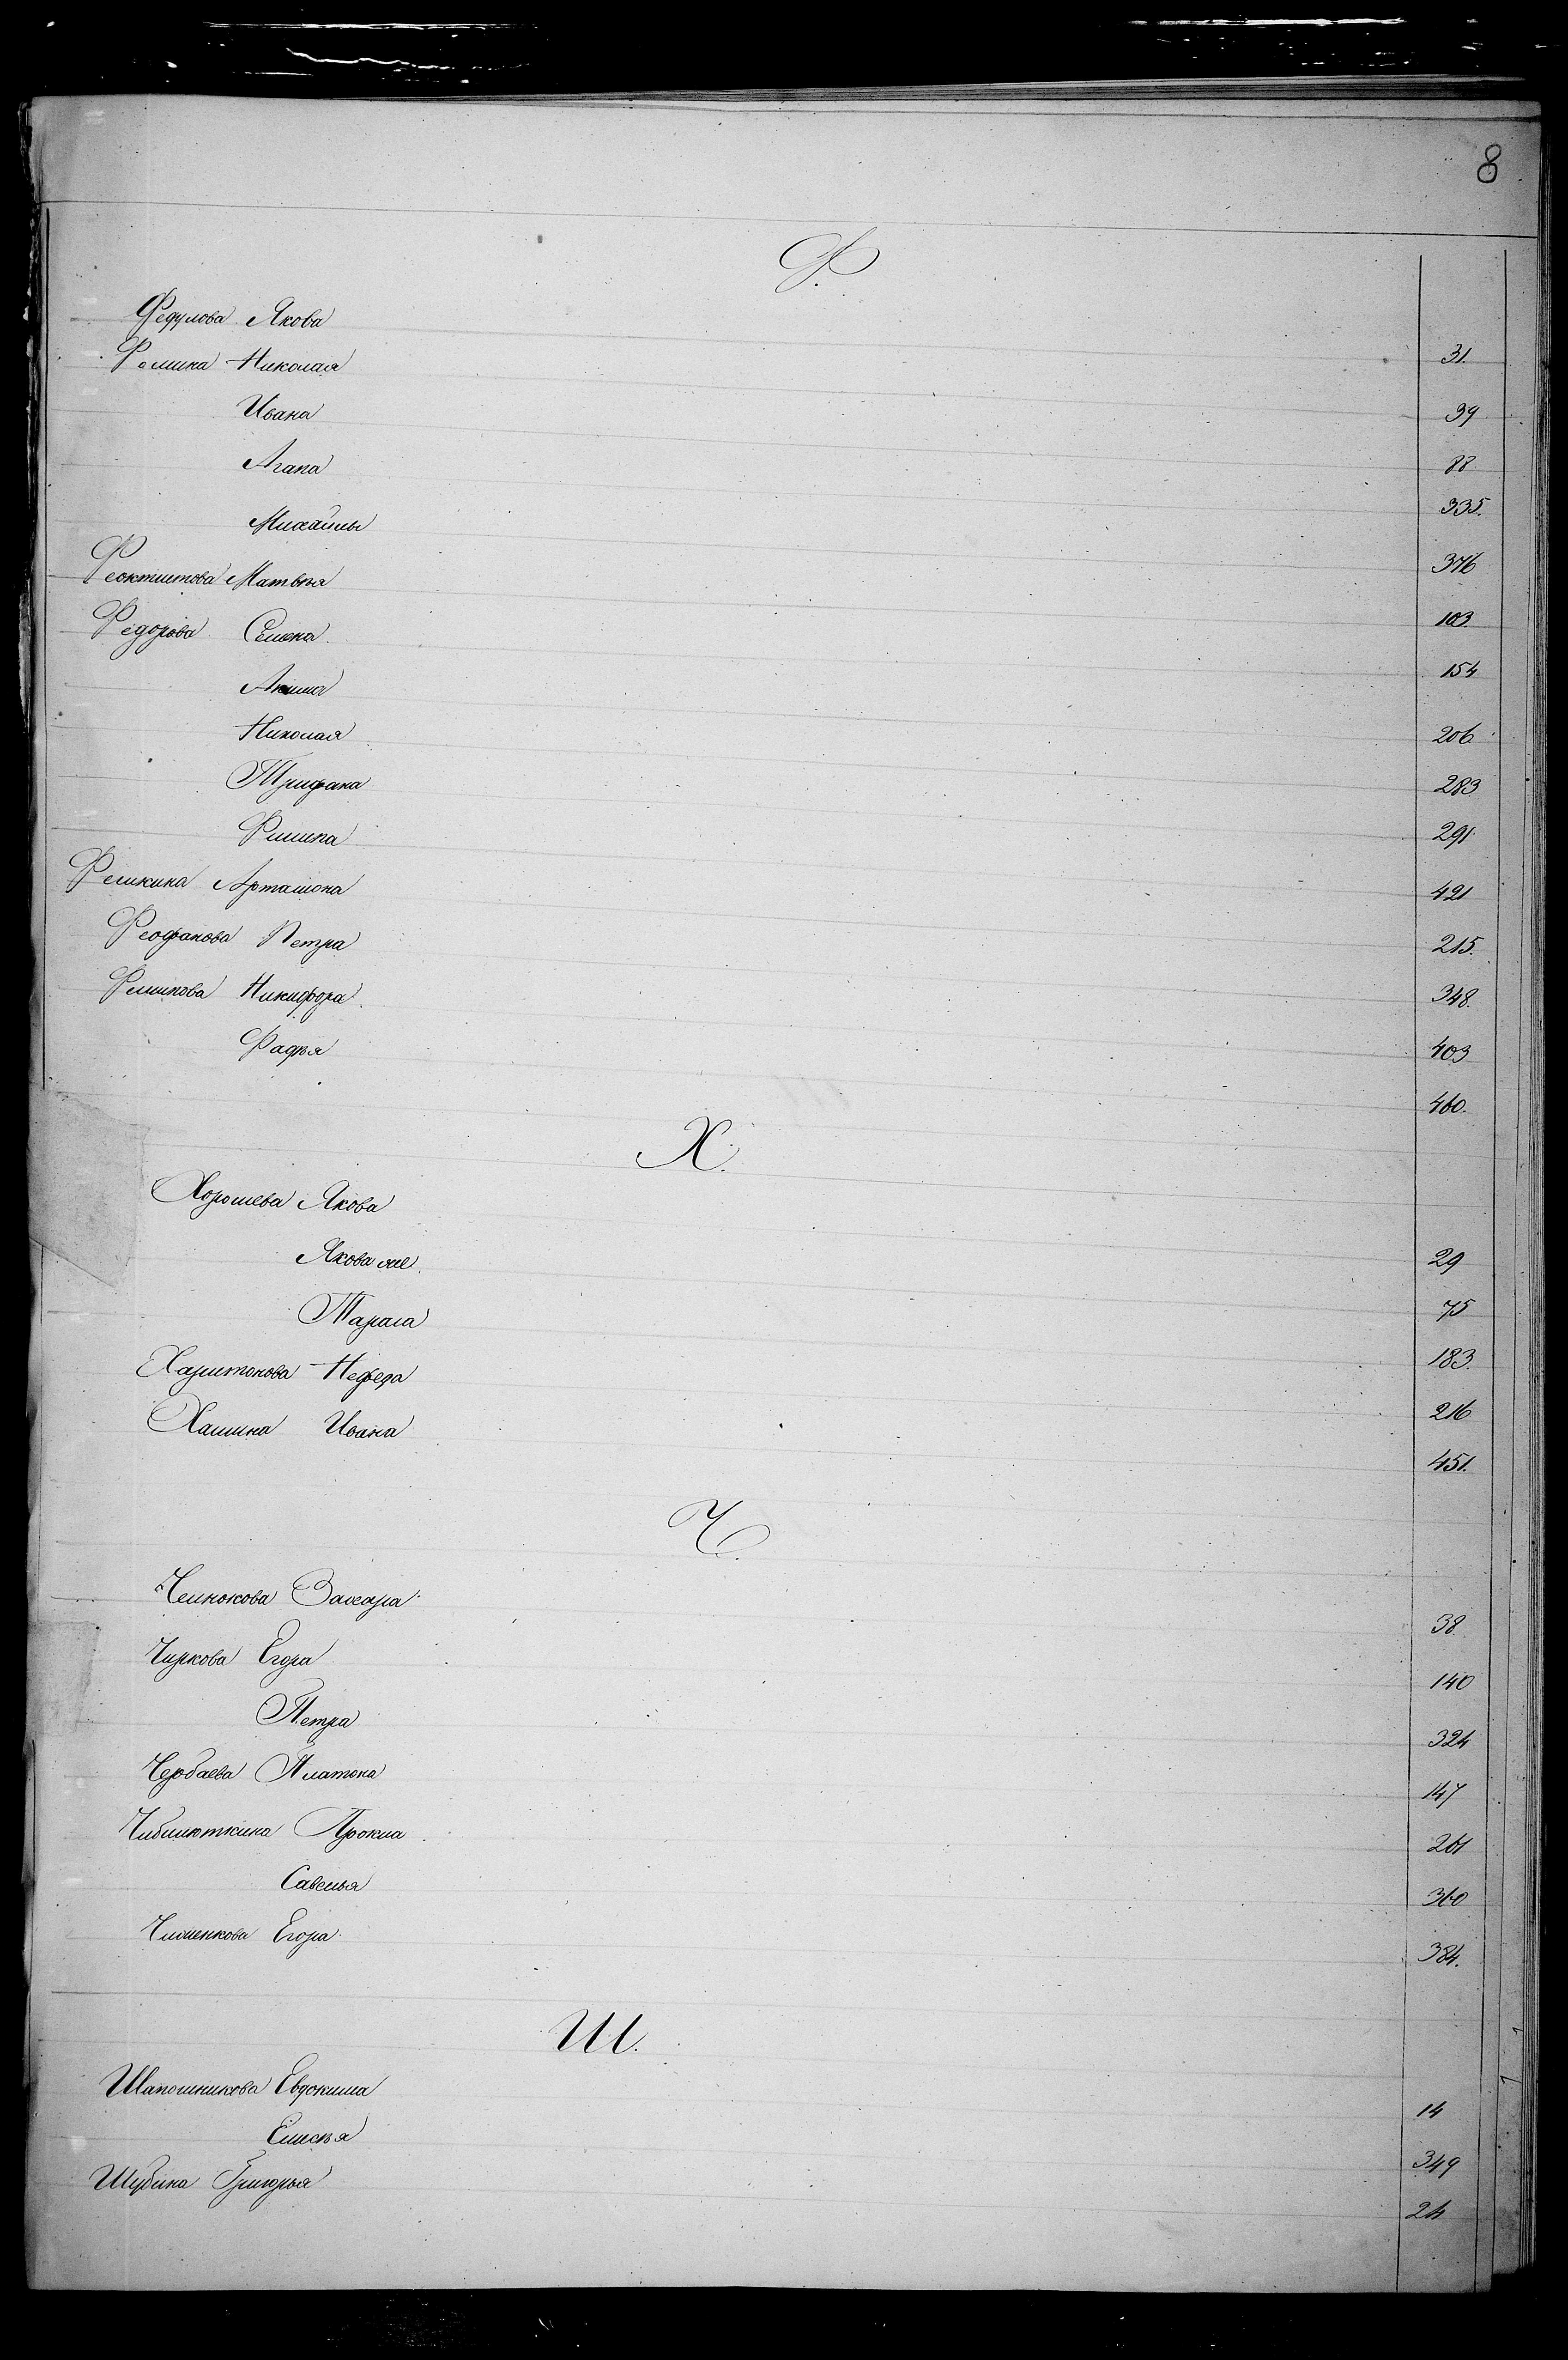 8
Ф.
Федулова Якова 31.
Фомина Николая 39
Ивана 88
Агапа 335.
Михайлы 376
Феоктистова Матвѣя 103.
Федорова Семена 154
Акима 206
Николая 283
Трифана 291
Филипа 421
Фелькина Арташона 215.
Феофанова Петра 348.
Филинова Никифора 403
Фадѣя 460.
Х.
Хорошева Якова 29
Якова же 75
Тараса 183.
Харитонова Нефеда 216
Хамина Ивана 451.
Ч.
Челнокова Захара 38
Чиркова Егора 140
Петра 324
Чербаева Платона 147
Чибилюткина Прокла 261
Савелья 360
Чиженкова Егора 384.
Ш.
Шапошникова Евдокима 14
Елисѣя 349
Шубина Григорья 24